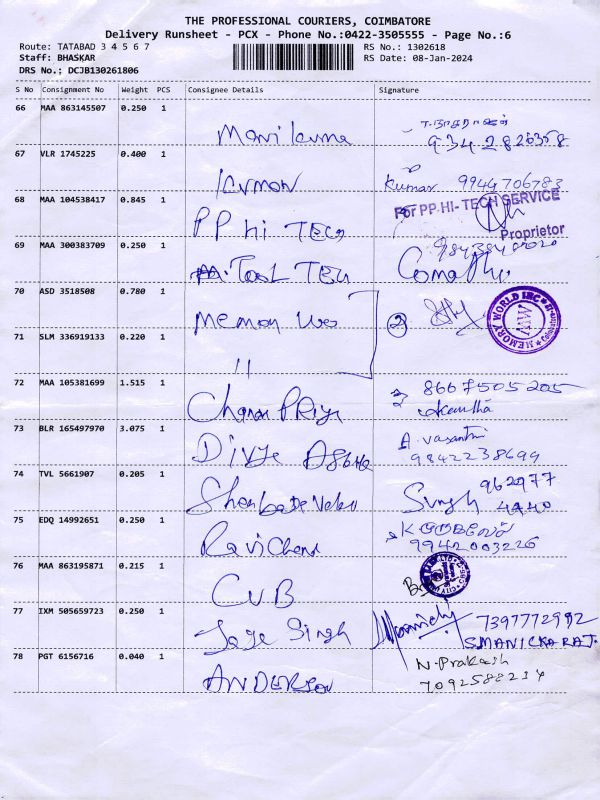 THE PROFESSIONAL COURIERS, COIMBATORE
Delivery Runsheet - PCX - Phone No.:0422-3505555 - Page No.:6
Route: TATABAD 3 4 5 6 7
RS No.: 1302618
Staff: BHASKAR
RS Date: 08-Jan-2024
DRS No.; DCJB130261806
S No Consignment No Weight PCS Consignee Details Signature
66 MAA 863145507 0.250 1
67 VLR 1745225 0.400 1
Kumar
68 MAA 104538417 0.845 1
PP Hi TECH
For PP.HI-TECH SERVICE
Proprietor
69 MAA 300383709 0.250 1
M. Tool TECH
70 ASD 3518508 0.780 1
2
MEMORY WORLD INC
MW
71 SLM 336919133 0.220 1
11
72 MAA 105381699 1.515 1
Charan Priya
8667505205
73 BLR 165497970 3.075 1
A. Vasanthi
9842238699
74 TVL 5661907 0.205 1
Singh 962977
4440
75 EDQ 14992651 0.250 1
Ravi Chand
9942003226
76 MAA 863195871 0.215 1
CUB
77 IXM 505659723 0.250 1
Jaye Singh
7397772992
S.MANICKARAJ.
78 PGT 6156716 0.040 1
ANDERSON
N. Prakash
7092588214